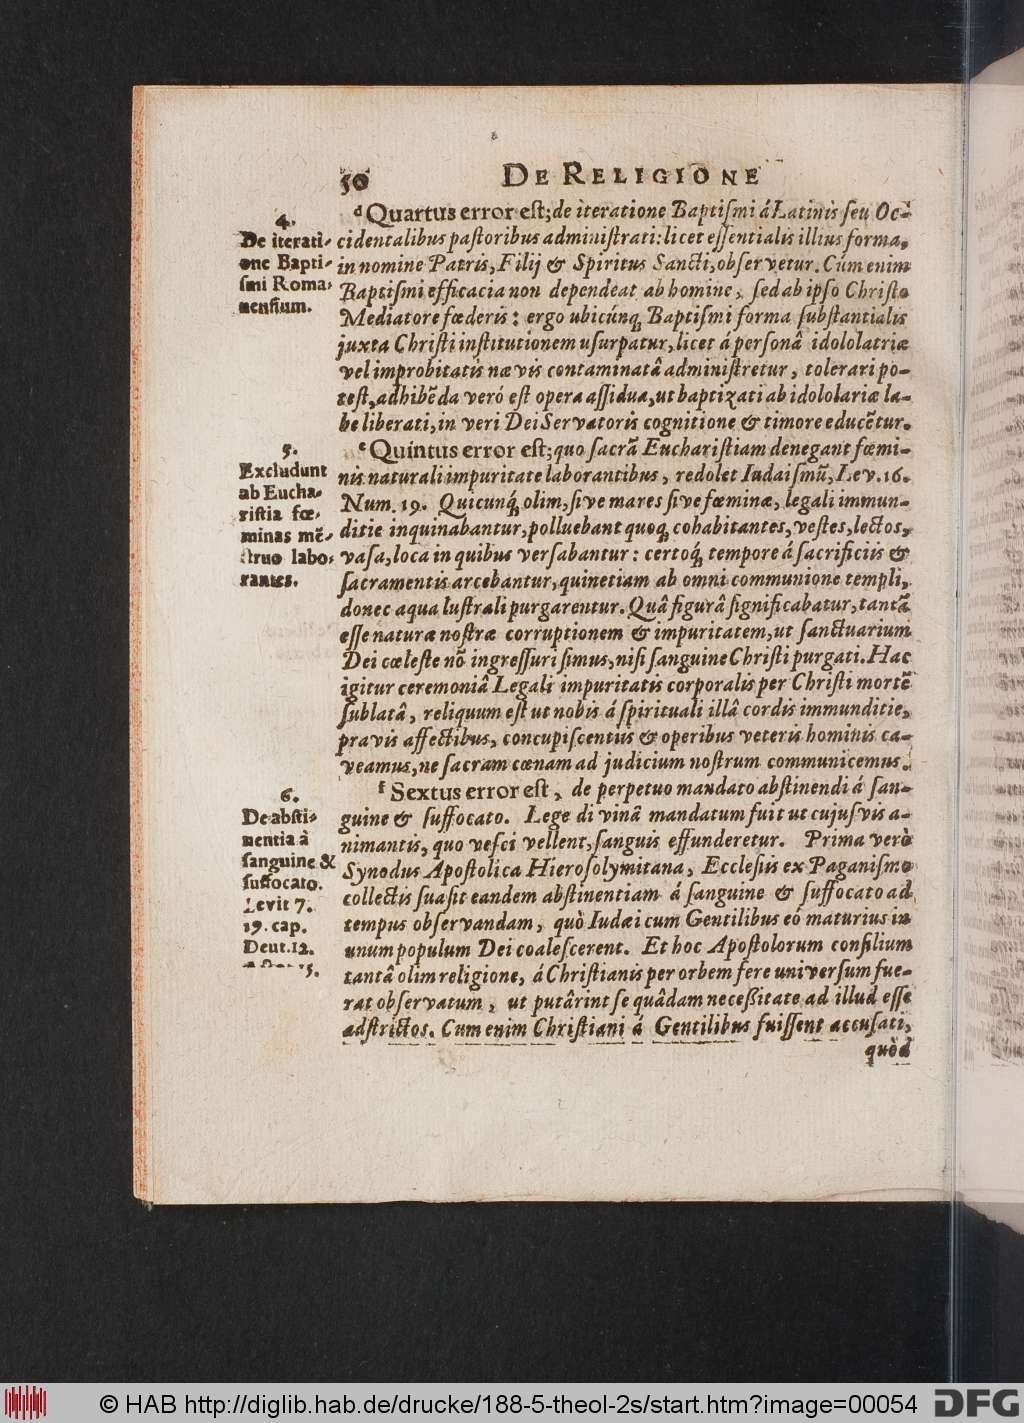 50 DE RELIGIONE
4.
De iterati-
one Bapti-
smi Roma-
nensium.
ᵈ Quartus error est; de iteratione Baptiſmi á Latinis ſeu Oc-
cidentalibus paſtoribus adminiſtrati: licet eſſentialis illius forma,
in nomine Patris, Filij & Spiritus Sancti, obſervetur. Cúm enim
Baptiſmi efficacia non dependeat ab homine, ſed ab ipſo Chriſto
Mediatore fœderis: ergo ubicúnq́ Baptiſmi forma ſubſtantialis
juxta Chriſti inſtitutionem uſurpatur, licet á perſonâ idololatriæ
vel improbitatis nævis contaminatâ adminiſtretur, tolerari po-
teſt, adhibẽda veró eſt opera aſſidua, ut baptizati ab idololariæ la-
be liberati, in veri Dei Servatoris cognitione & timore educẽtur.
5.
Excludunt
ab Eucha-
ristia fœ-
minas mẽ-
struo labo-
rantes.
ᵉ Quintus error est; quo ſacrã Euchariſtiam denegant fœmi-
nis naturali impuritate laborantibus, redolet Iudaiſmũ, Lev. 16.
Num. 19. Quicunq́ olim, ſive mares ſive fœminæ, legali immun-
ditie inquinabantur, polluebant quoq́, cohabitantes, veſtes, lectos,
vaſa, loca in quibus verſabantur: certoq́ tempore á ſacrificiis &
ſacramentis arcebantur, quinetiam ab omni communione templi,
donec aqua luſtrali purgarentur. Quâ figurâ ſignificabatur, tantã
eſſe naturæ noſtræ corruptionem & impuritatem, ut ſanctuarium
Dei cœleſte nõ ingreſſuri ſimus, niſi ſanguine Chriſti purgati. Hac
igitur ceremoniâ Legali impuritatis corporalis per Chriſti mortẽ
ſublatâ, reliquum eſt ut nobis á ſpirituali illâ cordis immunditie,
pravis affectibus, concupiſcentiis & operibus veteris hominis ca-
veamus, ne ſacram cœnam ad judicium noſtrum communicemus.
6.
De absti-
nentia à
sanguine &
suffocato.
Levit 7.
19. cap.
Deut. 12.
15.
ᶠ Sextus error est, de perpetuo mandato abſtinendi á ſan-
guine & ſuffocato. Lege divinâ mandatum fuit ut cujuſvis a-
nimantis, quo veſci vellent, ſanguis effunderetur. Prima verò
Synodus Apoſtolica Hieroſolymitana, Eccleſiis ex Paganiſmo
collectis ſuaſit eandem abſtinentiam á ſanguine & ſuffocato ad
tempus obſervandam, quò Iudæi cum Gentilibus eó maturius in
unum populum Dei coaleſcerent. Et hoc Apoſtolorum conſilium
tantâ olim religione, á Chriſtianis per orbem fere univerſum fue-
rat obſervatum, ut putârint ſe quâdam neceßitate ad illud eſſe
adſtrictos. Cum enim Chriſtiani á Gentilibus fuiſſent accuſati,
quòd
© HAB http://diglib.hab.de/drucke/188-5-theol-2s/start.htm?image=00054
DFG